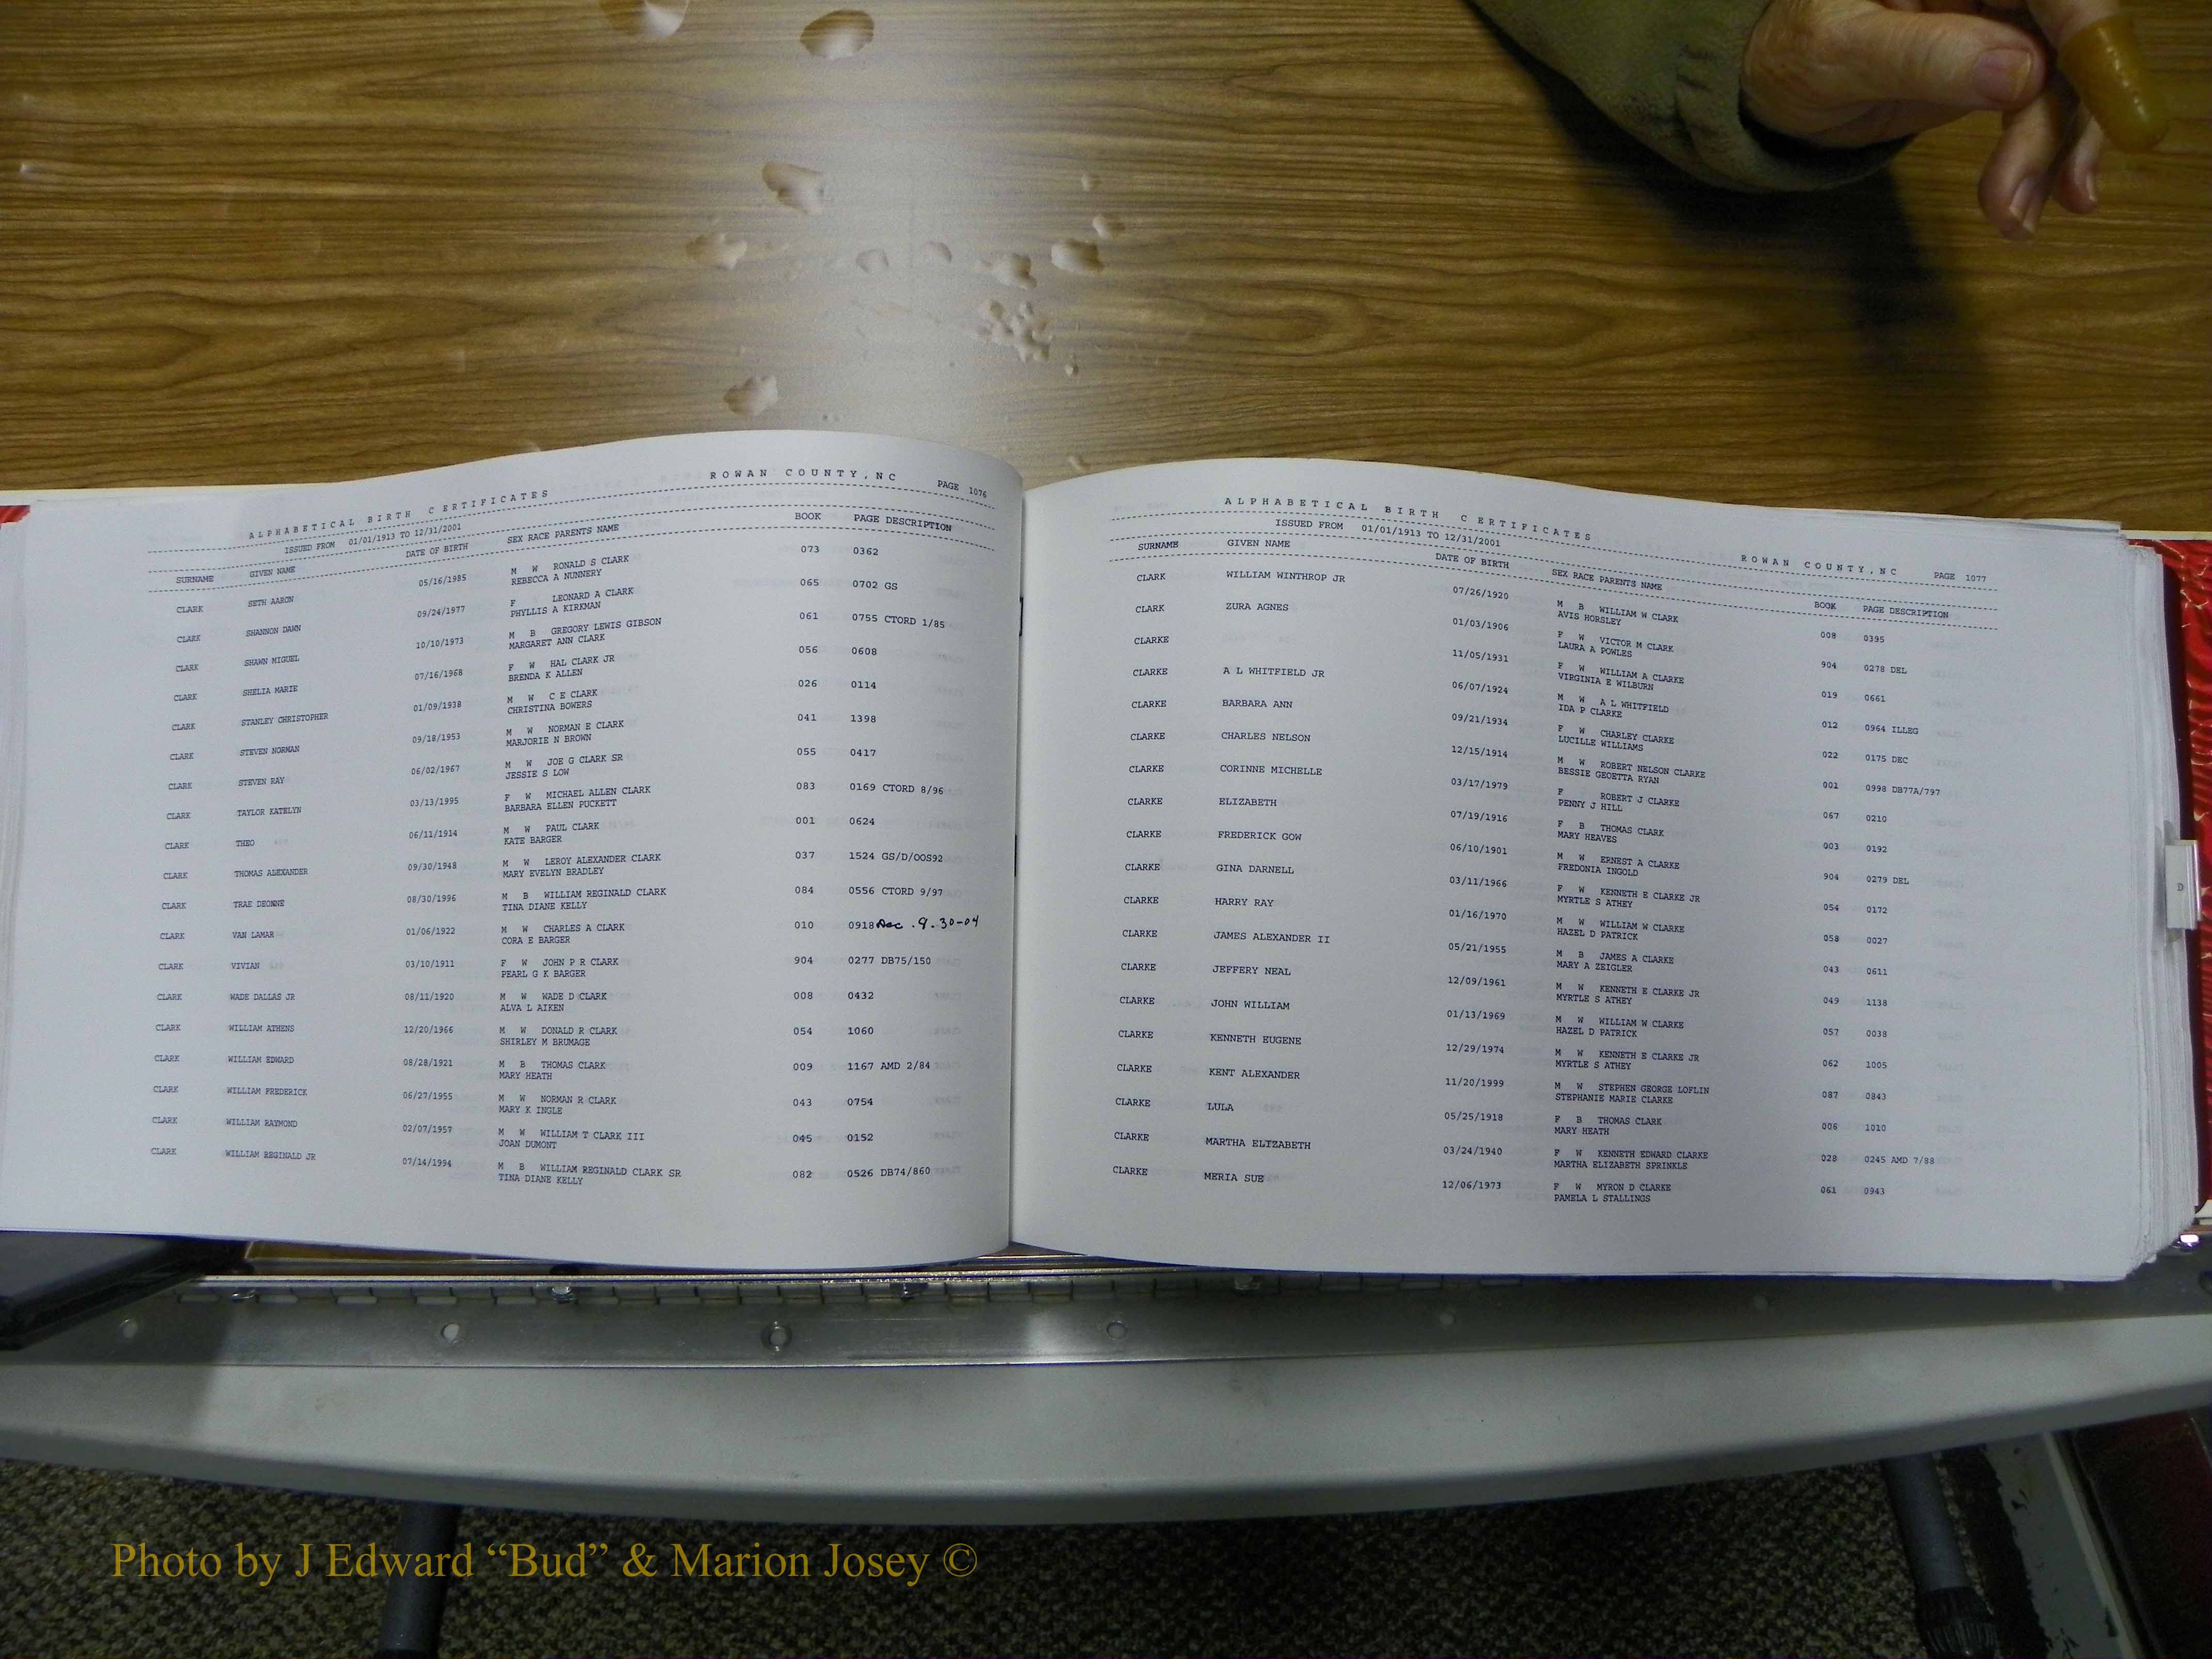 ALPHABETICAL BIRTH CERTIFICATES ROWAN COUNTY,NC PAGE 1076
ISSUED FROM 01/01/1913 TO 12/31/2001
SURNAME GIVEN NAME DATE OF BIRTH SEX RACE PARENTS NAME BOOK PAGE DESCRIPTION
CLARK SETH AARON 05/16/1985 M W RONALD S CLARK 073 0362
REBECCA A NUNNERY
CLARK SHANNON DAWN 09/24/1977 F LEONARD A CLARK 065 0702 GS
PHYLLIS A KIRKMAN
CLARK SHAWN MIGUEL 10/10/1973 M B GREGORY LEWIS GIBSON 061 0755 CTORD 1/85
MARGARET ANN CLARK
CLARK SHELIA MARIE 07/16/1968 F W HAL CLARK JR 056 0608
BRENDA K ALLEN
CLARK STANLEY CHRISTOPHER 01/09/1938 M W C E CLARK 026 0114
CHRISTINA BOWERS
CLARK STEVEN NORMAN 09/18/1953 M W NORMAN E CLARK 041 1398
MARJORIE N BROWN
CLARK STEVEN RAY 06/02/1967 M W JOE G CLARK SR 055 0417
JESSIE S LOW
CLARK TAYLOR KATELYN 03/13/1995 F W MICHAEL ALLEN CLARK 083 0169 CTORD 8/96
BARBARA ELLEN PUCKETT
CLARK THEO 06/11/1914 M W PAUL CLARK 001 0624
KATE BARGER
CLARK THOMAS ALEXANDER 09/30/1948 M W LEROY ALEXANDER CLARK 037 1524 GS/D/OOS92
MARY EVELYN BRADLEY
CLARK TRAE DEONNE 08/30/1996 M B WILLIAM REGINALD CLARK 084 0556 CTORD 9/97
TINA DIANE KELLY
CLARK VAN LAMAR 01/06/1922 M W CHARLES A CLARK 010 0918 Dec. 9-30-04
CORA E BARGER
CLARK VIVIAN 03/10/1911 F W JOHN P R CLARK 904 0277 DB75/150
PEARL G K BARGER
CLARK WADE DALLAS JR 08/11/1920 M W WADE D CLARK 008 0432
ALVA L AIKEN
CLARK WILLIAM ATHENS 12/20/1966 M W DONALD R CLARK 054 1060
SHIRLEY M BRUMAGE
CLARK WILLIAM EDWARD 08/28/1921 M B THOMAS CLARK 009 1167 AMD 2/84
MARY HEATH
CLARK WILLIAM FREDERICK 06/27/1955 M W NORMAN R CLARK 043 0754
MARY K INGLE
CLARK WILLIAM RAYMOND 02/07/1957 M W WILLIAM T CLARK III 045 0152
JOAN DUMONT
CLARK WILLIAM REGINALD JR 07/14/1994 M B WILLIAM REGINALD CLARK SR 082 0526 DB74/860
TINA DIANE KELLY
ALPHABETICAL BIRTH CERTIFICATES ROWAN COUNTY,NC PAGE 1077
ISSUED FROM 01/01/1913 TO 12/31/2001
SURNAME GIVEN NAME DATE OF BIRTH SEX RACE PARENTS NAME BOOK PAGE DESCRIPTION
CLARK WILLIAM WINTHROP JR 07/26/1920 M B WILLIAM W CLARK 008 0395
AVIS HORSLEY
CLARK ZURA AGNES 01/03/1906 F W VICTOR M CLARK 904 0278 DEL
LAURA A POWLES
CLARKE 11/05/1931 F W WILLIAM A CLARKE 019 0661
VIRGINIA E WILBURN
CLARKE A L WHITFIELD JR 06/07/1924 M W A L WHITFIELD 012 0964 ILLEG
IDA P CLARKE
CLARKE BARBARA ANN 09/21/1934 F W CHARLEY CLARKE 022 0175 DEC
LUCILLE WILLIAMS
CLARKE CHARLES NELSON 12/15/1914 M W ROBERT NELSON CLARKE 001 0998 DB77A/797
BESSIE GEOETTA RYAN
CLARKE CORINNE MICHELLE 03/17/1979 F ROBERT J CLARKE 067 0210
PENNY J HILL
CLARKE ELIZABETH 07/19/1916 F B THOMAS CLARK 003 0192
MARY HEAVES
CLARKE FREDERICK GOW 06/10/1901 M W ERNEST A CLARKE 904 0279 DEL
FREDONIA INGOLD
CLARKE GINA DARNELL 03/11/1966 F W KENNETH E CLARKE JR 054 0172
MYRTLE S ATHEY
CLARKE HARRY RAY 01/16/1970 M W WILLIAM W CLARKE 058 0027
HAZEL D PATRICK
CLARKE JAMES ALEXANDER II 05/21/1955 M B JAMES A CLARKE 043 0611
MARY A ZEIGLER
CLARKE JEFFERY NEAL 12/09/1961 M W KENNETH E CLARKE JR 049 1138
MYRTLE S ATHEY
CLARKE JOHN WILLIAM 01/13/1969 M W WILLIAM W CLARKE 057 0038
HAZEL D PATRICK
CLARKE KENNETH EUGENE 12/29/1974 M W KENNETH E CLARKE JR 062 1005
MYRTLE S ATHEY
CLARKE KENT ALEXANDER 11/20/1999 M W STEPHEN GEORGE LOFLIN 087 0843
STEPHANIE MARIE CLARKE
CLARKE LULA 05/25/1918 F B THOMAS CLARK 006 1010
MARY HEATH
CLARKE MARTHA ELIZABETH 03/24/1940 F W KENNETH EDWARD CLARKE 028 0245 AMD 7/88
MARTHA ELIZABETH SPRINKLE
CLARKE MERIA SUE 12/06/1973 F W MYRON D CLARKE 061 0943
PAMELA L STALLINGS
D
Photo by J Edward “Bud” & Marion Josey ©